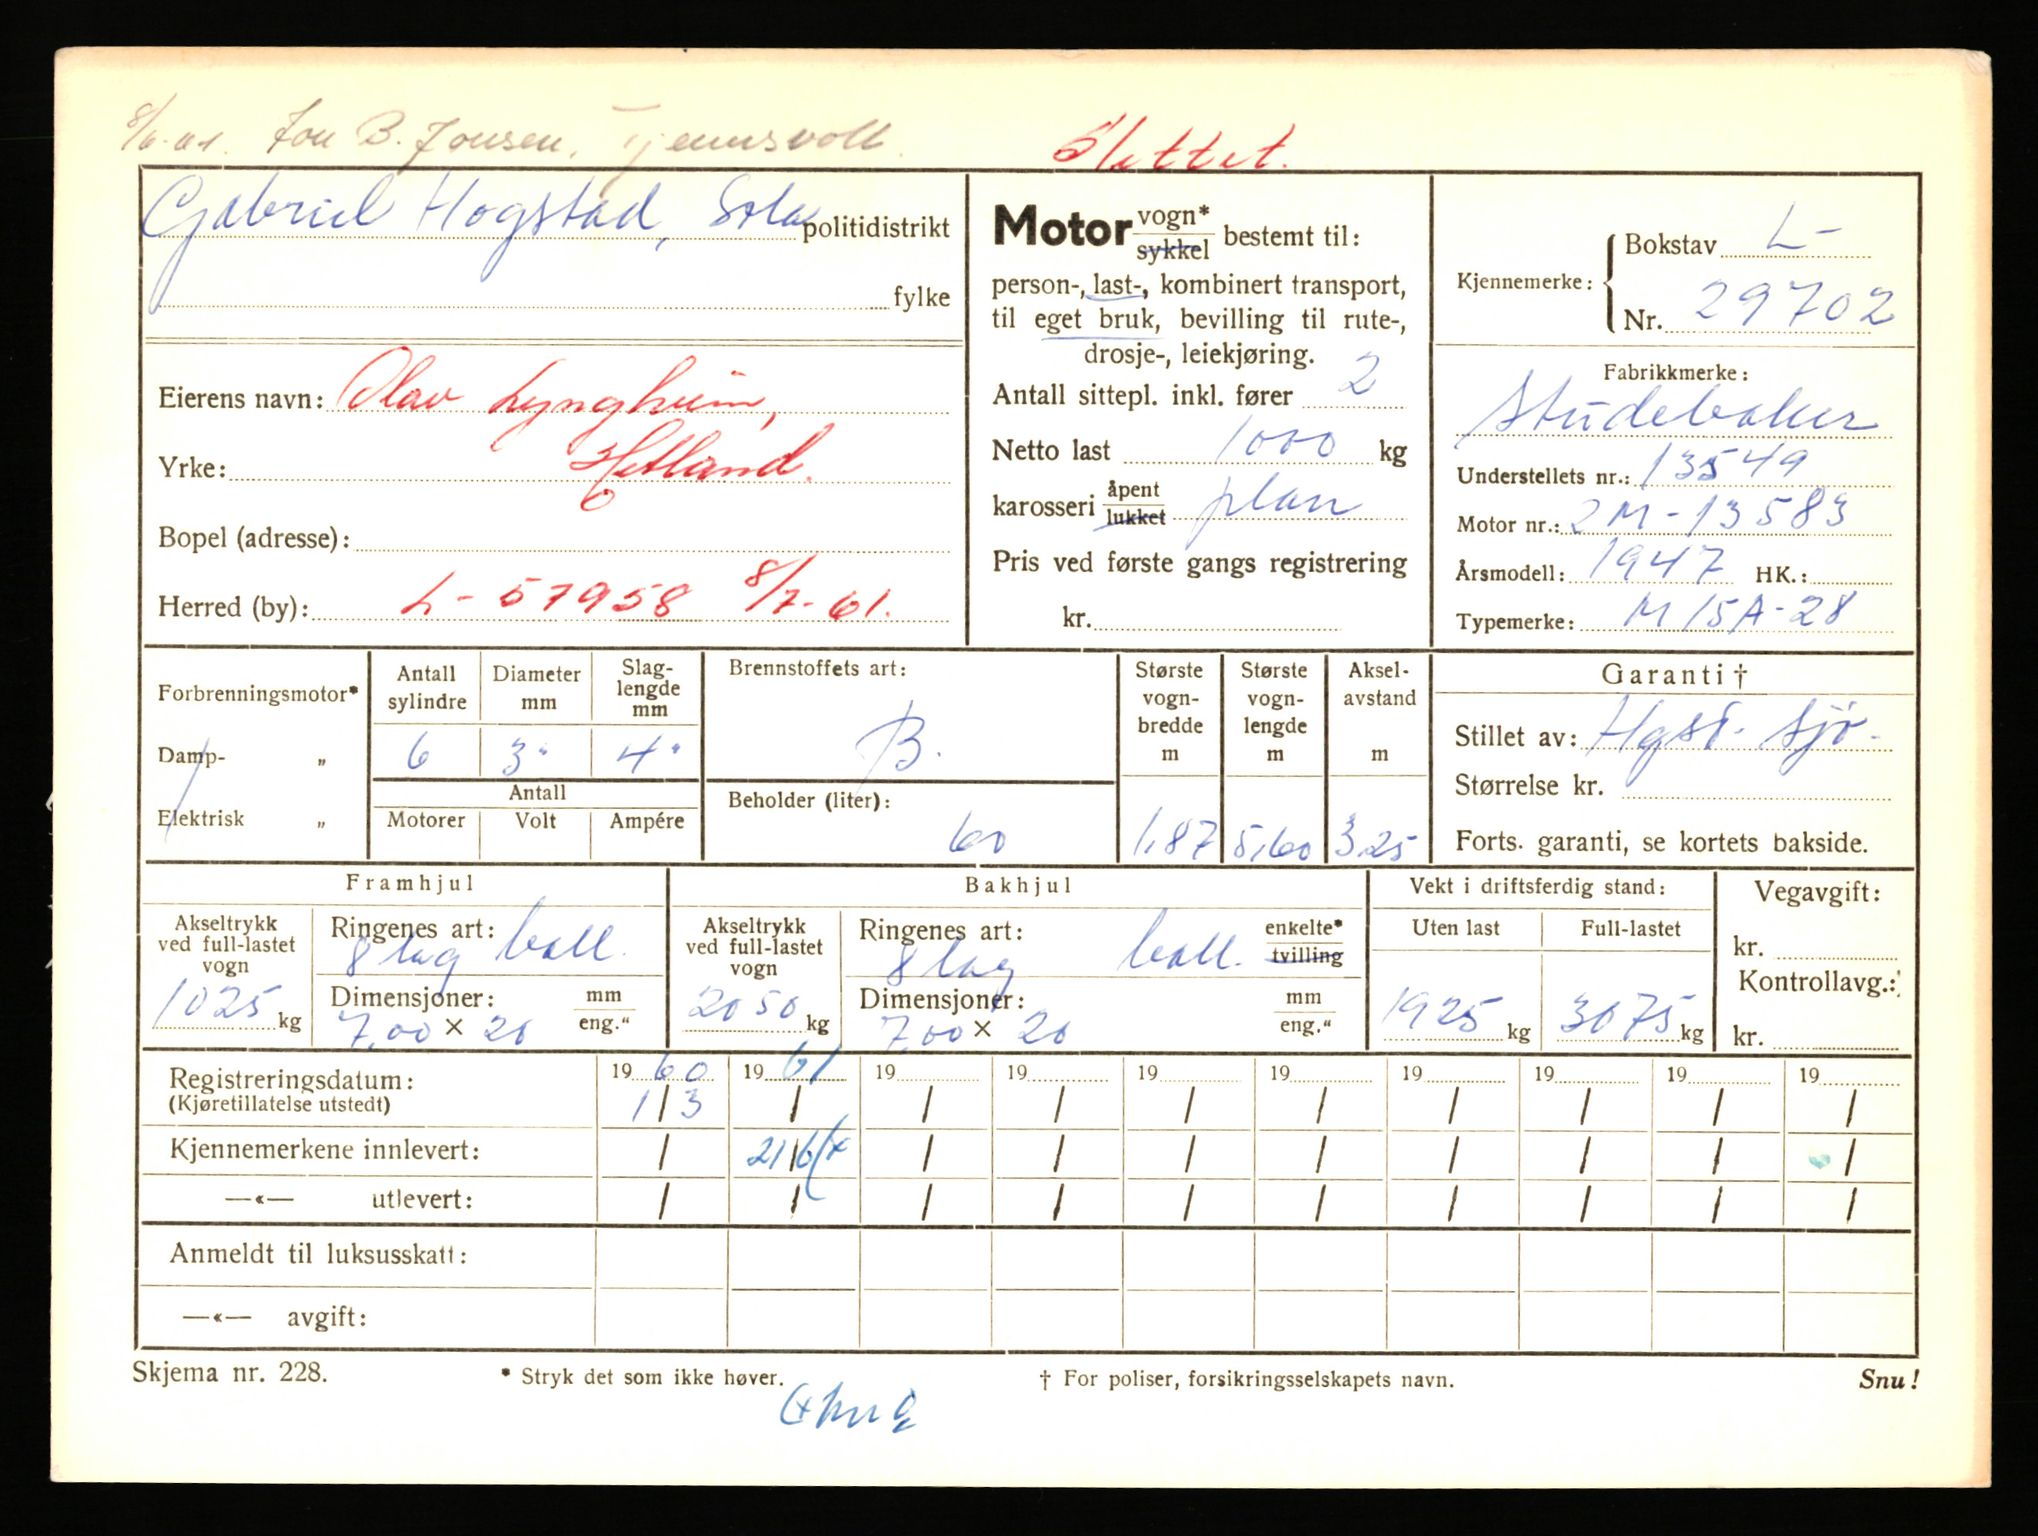 8/6-61. Jon B. Jonsen, Tjennsvoll.
Slettet.
Gabriel Hogstad, Sola politidistrikt
fylke
Eierens navn: Olav Lyngheim,
Yrke: Hetland.
Bopel (adresse):
Herred (by): L-57958 8/7-61.
Motor vogn* sykkel bestemt til:
person-, last-, kombinert transport,
til eget bruk, bevilling til rute-,
drosje-, leiekjøring.
Antall sittepl. inkl. fører 2
Netto last 1000 kg
karosseri åpent lukket plan
Pris ved første gangs registrering
kr.
Kjennemerke: Bokstav L-
Nr. 29702
Fabrikkmerke:
Studebaker
Understellets nr.: 13549
Motor nr.: 2M-13583
Årsmodell: 1947 HK.:
Typemerke: M15A-28
Forbrenningsmotor*
Damp- "
Elektrisk "
Antall sylindre Diameter mm Slag-lengde mm
6 3" 4"
Antall
Motorer Volt Ampére
Brennstoffets art:
B.
Beholder (liter):
60
Største vogn-bredde m
1,87
Største vogn-lengde m
5,60
Aksel-avstand m
3,25
Garanti †
Stillet av: Hgst. Sjø-
Størrelse kr.
Forts. garanti, se kortets bakside.
Framhjul
Akseltrykk ved full-lastet vogn
1025 kg
Ringenes art:
8 lag ball.
Dimensjoner: mm eng."
7,00 × 20
Bakhjul
Akseltrykk ved full-lastet vogn
2050 kg
Ringenes art: enkelte* tvilling
8 lag ball.
Dimensjoner: mm eng."
7,00 × 20
Vekt i driftsferdig stand:
Uten last Full-lastet
1925 kg 3075 kg
Vegavgift:
kr.
Kontrollavg.:
kr.
Registreringsdatum: 19 60 19 61 19 19 19 19 19 19 19 19
(Kjøretillatelse utstedt) 1/3 / / / / / / / / /
Kjennemerkene innlevert: / 21/6 (x / / / / / / / /
—«— utlevert: / / / / / / / / / /
Anmeldt til luksusskatt:
—«— avgift:
Skjema nr. 228.
* Stryk det som ikke høver.
† For poliser, forsikringsselskapets navn.
Snu!